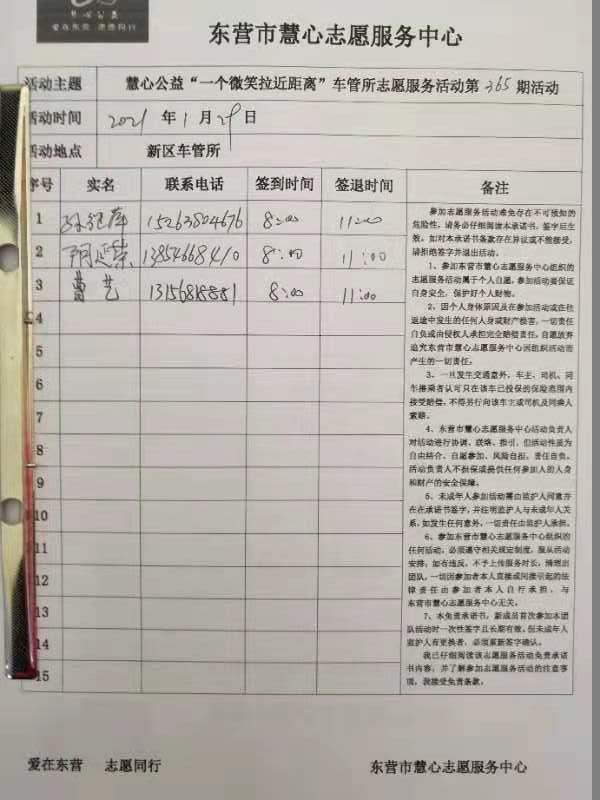 爱在东营 志愿同行
东营市慧心志愿服务中心
活动主题 慧心公益“一个微笑拉近距离”车管所志愿服务活动第365期活动
活动时间 2021年1月29日
活动地点 新区车管所
序号 实名 联系电话 签到时间 签退时间 备注
1 15263804676 8:00 11:00
2 13854668410 8:00 11:00
3 曹艺 13156818851 8:00 11:00
4
5
6
7
8
9
10
11
12
13
14
15
参加志愿服务活动难免存在不可预知的
危险性，请务必仔细阅读本承诺书，签字后生
效。如对本承诺书条款存在异议或不能接受，
请拒绝签字并退出活动。
1、参加东营市慧心志愿服务中心组织的
志愿服务活动属于个人自愿，参加活动要保证
自身安全，保护好个人财物。
2、因个人身体原因及在参加活动或在往
返途中发生的任何人身或财产损害，一切责任
自负或由侵权人承担完全赔偿责任，自愿放弃
追究东营市慧心志愿服务中心因组织活动而
产生的一切责任。
3、一旦发生交通意外，车主、司机、同
车搭乘者认可只在该车已投保的保险范围内
接受赔偿，不得另行向该车主或司机及同乘人
索赔。
4、东营市慧心志愿服务中心活动负责人
对活动进行协调、联络、指引，但活动性质为
自由结合、自愿参加、风险自担、责任自负。
活动负责人不担保或提供任何参加人的人身
和财产的安全保障。
5、未成年人参加活动需由监护人同意并
在在承诺书签字，并注明监护人与未成年人关
系，如发生任何意外，一切责任由监护人承担。
6、参加东营市慧心志愿服务中心组织的
任何活动，必须遵守相关规定制度，服从活动
安排，如有违反，不予上传服务时长，清理出
团队。一切因参加者本人直接或间接引起的法
律责任由参加者本人自行承担，与
东营市慧心志愿服务中心无关。
7、本免责承诺书，新成员首次参加本团
队活动时一次性签字且长期有效，但未成年人
监护人有更换者，必须重新签字确认。
我已仔细阅读该志愿服务活动免责承诺
书内容，并了解参加志愿服务活动的注意事
项，我接受免责条款。
爱在东营 志愿同行 东营市慧心志愿服务中心